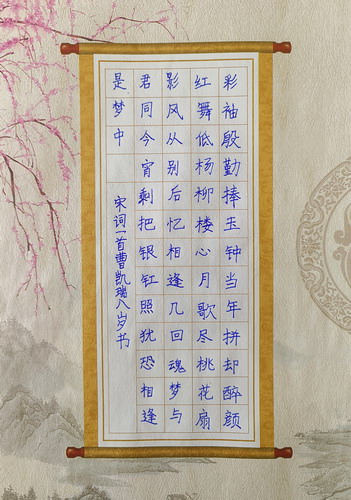 彩袖殷勤捧玉钟当年拼却醉颜
红舞低杨柳楼心月歌尽桃花扇
影风从别后忆相逢几回魂梦与
君同今宵剩把银釭照犹恐相逢
是梦中
宋词一首曹凯瑞八岁书